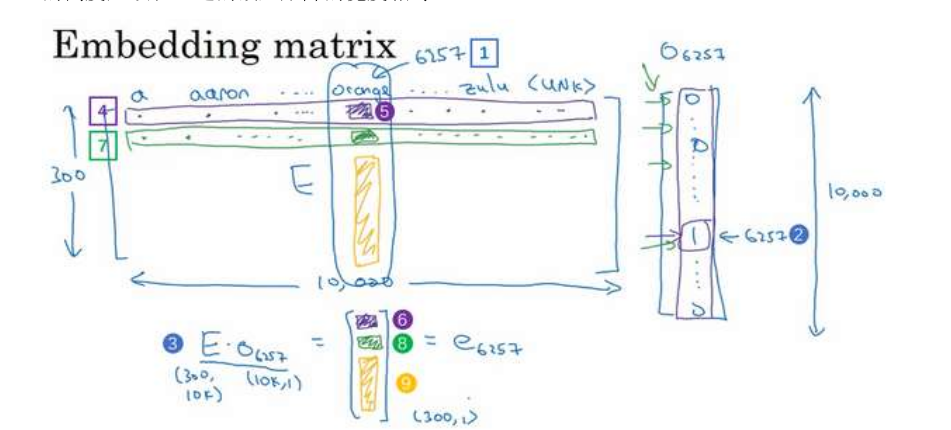 Embedding matrix
6257 1
O6257
a aaron .... orange .... zulu <UNK>
4
5
7
300
E
0
0
1 ← 6257 2
0
10,000
10,000
3 E · O6257 = [ 6 8 9 ] = e6257
(300, 10K) (10K,1)
(300,1)